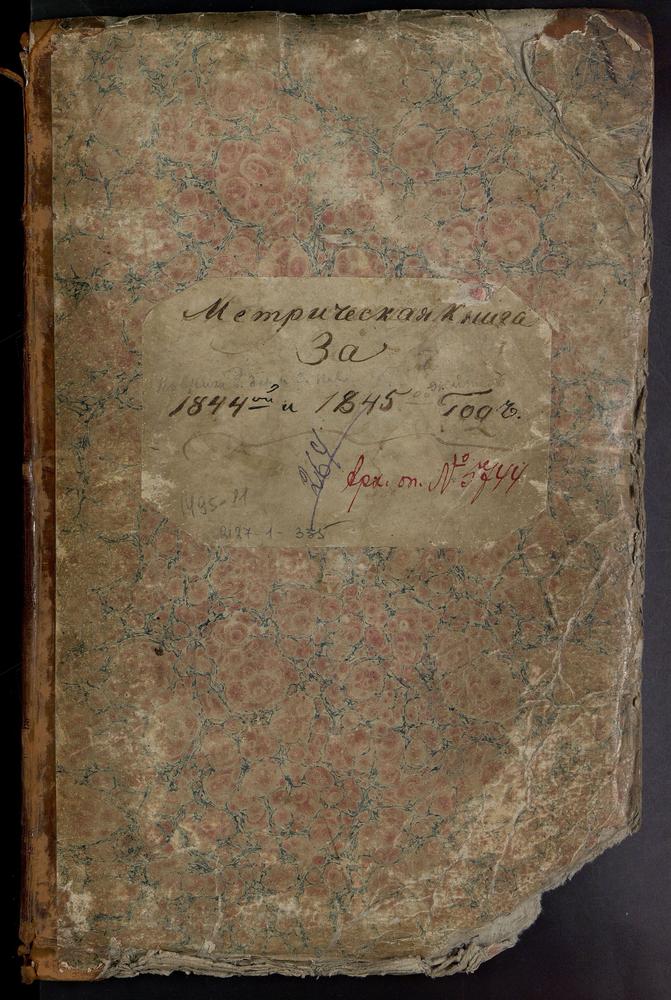 Метрическая Книга
За
1844ой и 1845ой Годъ.
264
Арх. оп. №
495-11
2127-1-335